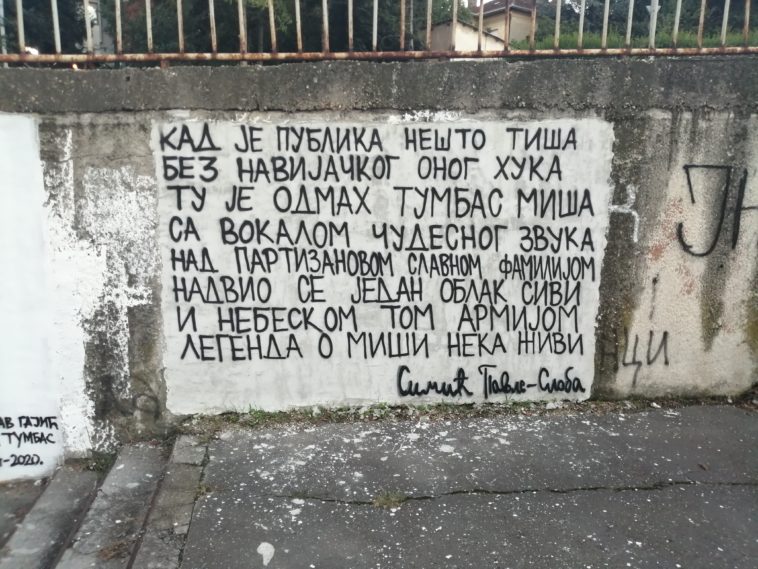 КАД ЈЕ ПУБЛИКА НЕШТО ТИША
БЕЗ НАВИЈАЧКОГ ОНОГ ХУКА
ТУ ЈЕ ОДМАХ ТУМБАС МИША
СА ВОКАЛОМ ЧУДЕСНОГ ЗВУКА
НАД ПАРТИЗАНОВОМ СЛАВНОМ ФАМИЛИЈОМ
НАДВИО СЕ ЈЕДАН ОБЛАК СИВИ
И НЕБЕСКОМ ТОМ АРМИЈОМ
ЛЕГЕНДА О МИШИ НЕКА ЖИВИ
Симић Павле-Слоба
АВ ГАЈИЋ
ТУМБАС
-2020.
ЈН
ЦИ